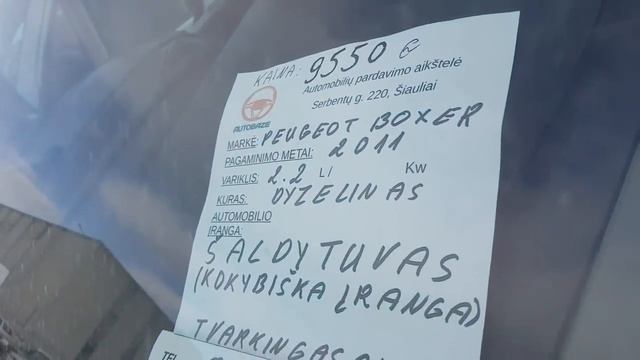 KAINA: 9550 €
Automobilių pardavimo aikštelė
Serbentų g. 220, Šiauliai
AUTOBAZĖ
MARKĖ: PEUGEOT BOXER
PAGAMINIMO METAI: 2011
VARIKLIS: 2.2 L/ Kw
KURAS: DYZELINAS
AUTOMOBILIO
ĮRANGA:
ŠALDYTUVAS
(KOKYBIŠKA ĮRANGA)
TVARKINGAS
TEL